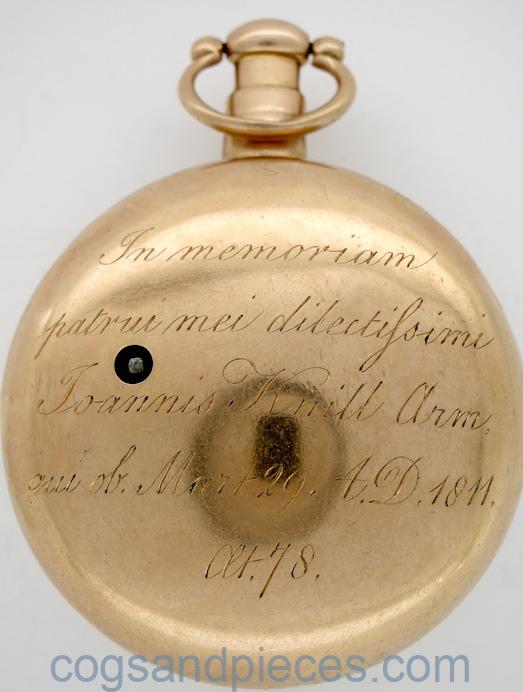 In memoriam
patrui mei dilectiſsimi
Ioannis Knill Arm.
qui ob. Mart 29. A.D. 1811.
Æt. 78.
cogsandpieces.com